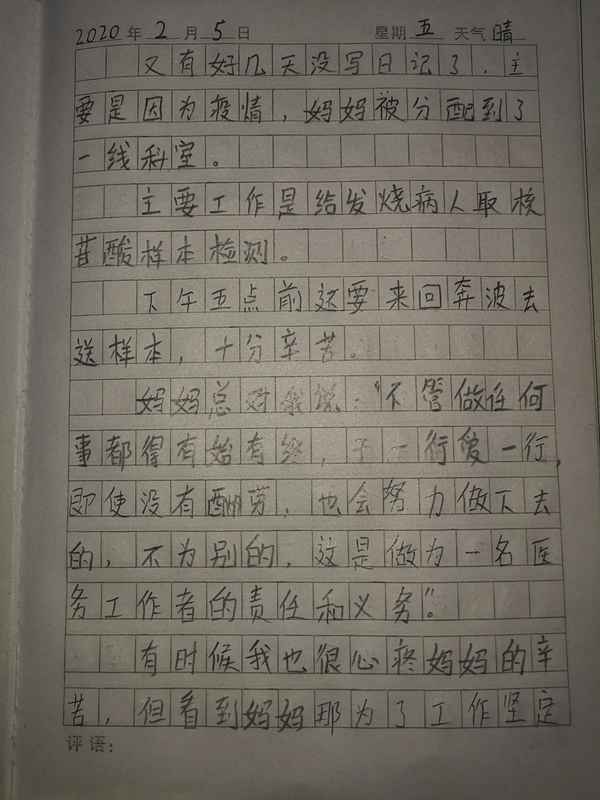 2020年2月5日 星期五 天气晴
又有好几天没写日记了，主
要是因为疫情，妈妈被分配到了
一线科室。
主要工作是给发烧病人取核
苷酸样本检测。
下午五点前还要来回奔波去
送样本，十分辛苦。
妈妈总对我说：“不管做任何
事都得有始有终，干一行爱一行，
即使没有酬劳，也会努力做下去
的，不为别的，这是做为一名医
务工作者的责任和义务”。
有时候我也很心疼妈妈的辛
苦，但看到妈妈那为了工作坚定
评语：